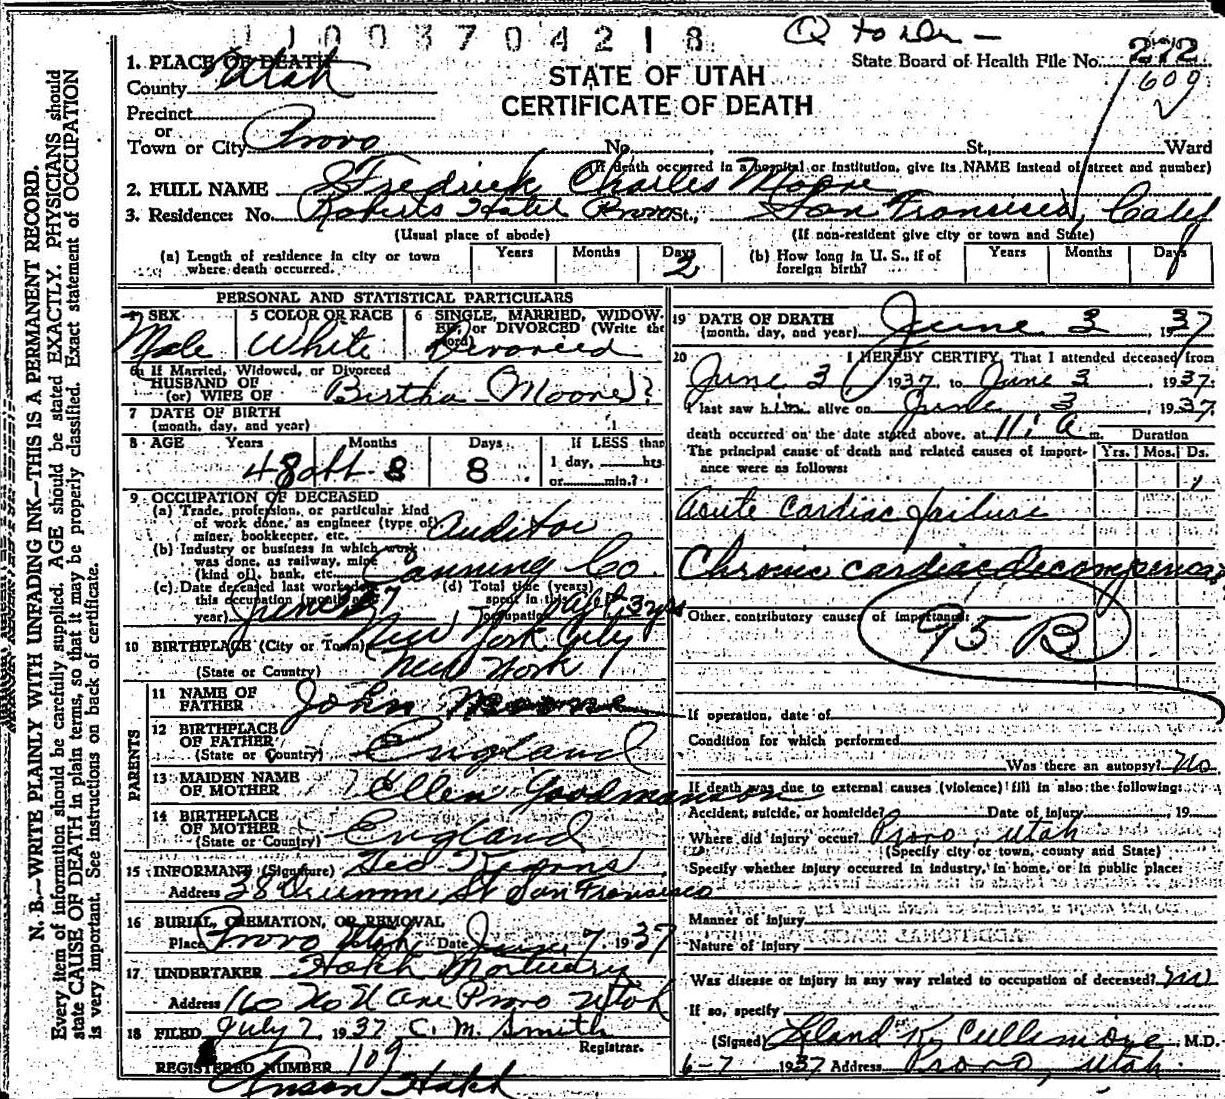 1 1 0 0 3 7 0 4 2 1 8
State Board of Health File No. 212
609
STATE OF UTAH
CERTIFICATE OF DEATH
1. PLACE OF DEATH
County Utah
Precinct
or
Town or City Provo No. St., Ward
(If death occurred in a hospital or institution, give its NAME instead of street and number)
2. FULL NAME Fredrick Charles Moore
3. Residence: No. Roberts Hotel Provo St., San Francisco, Calif
(Usual place of abode) (If non-resident give city or town and State)
(a) Length of residence in city or town where death occurred. Years Months Days 2
(b) How long in U. S., if of foreign birth? Years Months Days
PERSONAL AND STATISTICAL PARTICULARS
4 SEX Male
5 COLOR OR RACE White
6 SINGLE, MARRIED, WIDOWED, or DIVORCED (Write the word) Divorced
6a If Married, Widowed, or Divorced
HUSBAND OF
(or) WIFE OF Birtha Moore?
7 DATE OF BIRTH
(month, day, and year)
8 AGE Years Months Days If LESS than
48 8 8 1 day, hrs.
or min.?
9 OCCUPATION OF DECEASED
(a) Trade, profession, or particular kind
of work done, as engineer (type of)
miner, bookkeeper, etc. Auditor
(b) Industry or business in which work
was done, as railway, mine
(kind of), bank, etc. Canning Co
(c) Date deceased last worked at
this occupation (month and
year) June 37
(d) Total time (years)
spent in this
occupation 3 yrs
10 BIRTHPLACE (City or Town) New York City
(State or Country) New York
PARENTS
11 NAME OF
FATHER John Moore
12 BIRTHPLACE
OF FATHER
(State or Country) England
13 MAIDEN NAME
OF MOTHER Ellen Goodmanson
14 BIRTHPLACE
OF MOTHER
(State or Country) England
15 INFORMANT (Signature) Geo
Address 38 Drumm St San Francisco
16 BURIAL, CREMATION, OR REMOVAL
Place Provo Utah Date June 7, 1937
17 UNDERTAKER Hatch Mortuary
Address Provo Utah
18 FILED July 2, 1937 C. M. Smith
Registrar.
REGISTERED NUMBER 109
Anson Hatch
19 DATE OF DEATH
(month, day, and year) June 3 1937
20 I HEREBY CERTIFY, That I attended deceased from
June 3, 1937, to June 3, 1937.
I last saw him alive on June 3, 1937.
death occurred on the date stated above, at 11: a m.
Duration
The principal cause of death and related causes of importance were as follows: Yrs. Mos. Ds.
1
Acute cardiac failure
Chronic cardiac decompensa
Other contributory causes of importance:
95 B
If operation, date of
Condition for which performed
Was there an autopsy? No
If death was due to external causes (violence) fill in also the following:
Accident, suicide, or homicide? Date of injury , 19
Where did injury occur? Provo, Utah
(Specify city or town, county and State)
Specify whether injury occurred in industry, in home, or in public place:
Manner of injury
Nature of injury
Was disease or injury in any way related to occupation of deceased? No
If so, specify
(Signed) Leland K. Cullimore, M.D.
6-7 1937 Address Provo, Utah.
N. B.—WRITE PLAINLY WITH UNFADING INK—THIS IS A PERMANENT RECORD.
Every item of information should be carefully supplied. AGE should be stated EXACTLY. PHYSICIANS should
state CAUSE OF DEATH in plain terms, so that it may be properly classified. Exact statement of OCCUPATION
is very important. See instructions on back of certificate.